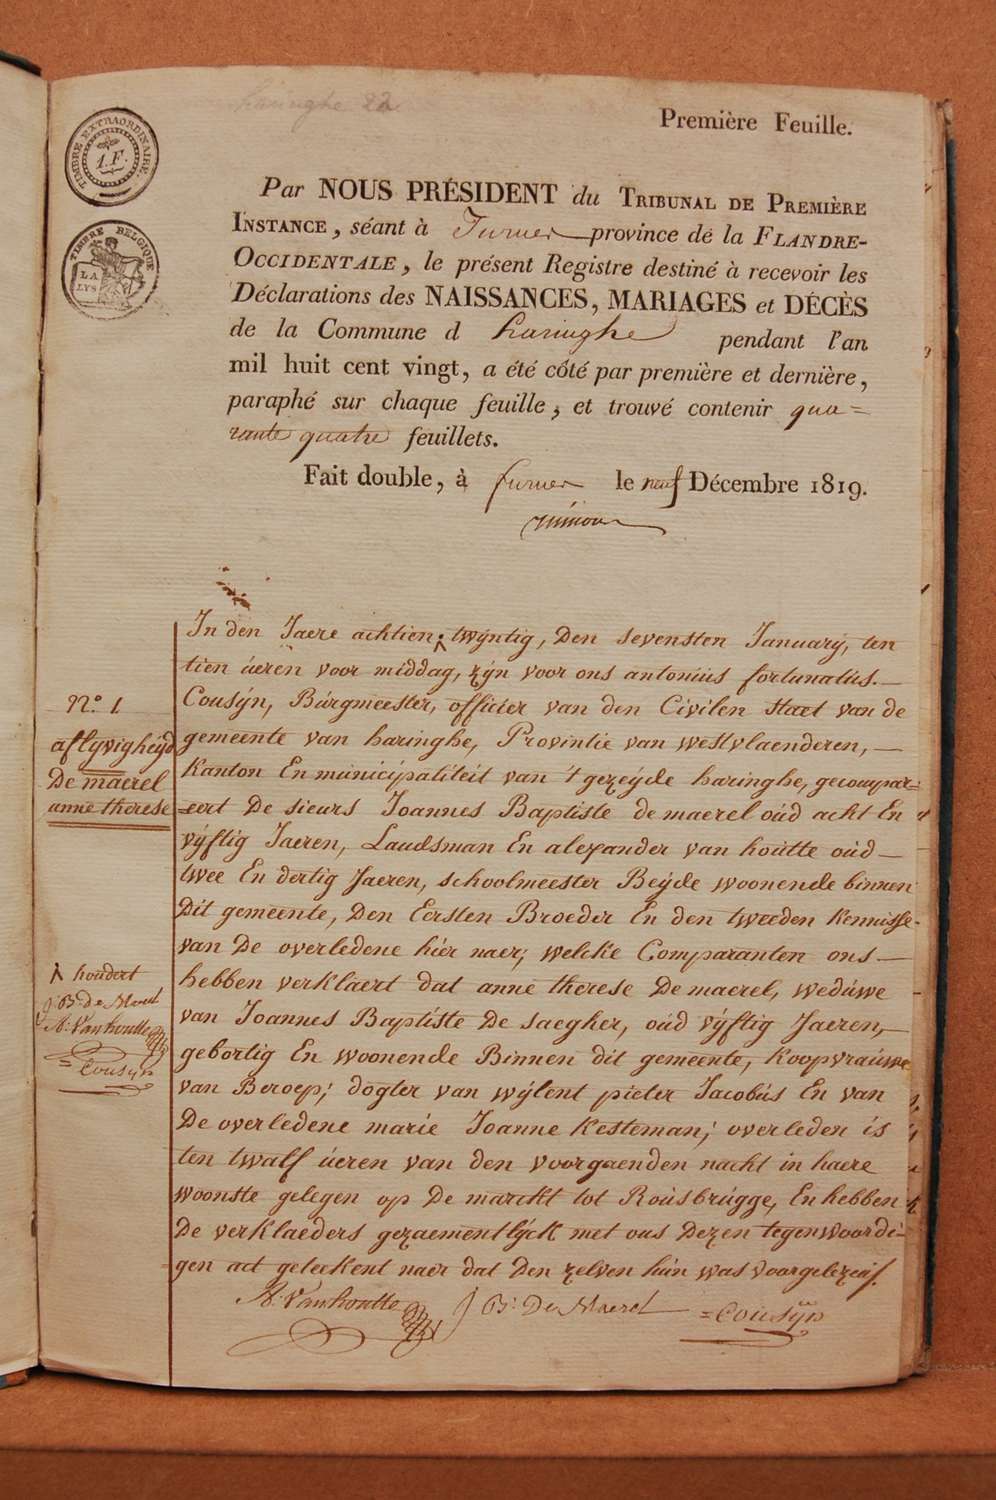 haringhe 22
Première Feuille.
TIMBRE EXTRAORDINAIRE.
1.F.
TIMBRE BELGIQUE
LA
LYS
Par NOUS PRÉSIDENT du TRIBUNAL DE PREMIÈRE
INSTANCE, séant à Furnes province de la FLANDRE-
OCCIDENTALE, le présent Registre destiné à recevoir les
Déclarations des NAISSANCES, MARIAGES et DÉCÈS
de la Commune d haringhe pendant l'an
mil huit cent vingt, a été côté par première et dernière,
paraphé sur chaque feuille, et trouvé contenir qua=
rante quatre feuillets.
Fait double, à furnes le neuf Décembre 1819.
In den Jaere achtien twÿntig, Den sevensten Januarÿ, ten
tien úeren voor middag, zÿn voor ons antoniús fortunatiús.—
Cousÿn, Búrgmeester, officier van den Civilen Staet van de
gemeente van haringhe, Provintie van westvlaenderen,—
Kanton En municipaliteit van 't gezeÿde haringhe, gecompar=
=eert De sieurs Joannes Baptiste de maerel oúd acht En
vÿftig Jaeren, Landsman En alexander van houtte oúd—
twee En dertig Jaeren, schoolmeester Beÿde woonende binnen
Dit gemeente, Den Eersten Broeder En den tweeden kennisse
van De overledene hier naer; welcke Comparanten ons—
hebben verklaert dat anne therese De maerel, wedúwe
van Joannes Baptiste De saegher, oúd vÿftig Jaeren,—
gebortig En woonende Binnen dit gemeente, koopvraúwe
van Beroep; dogter van wÿlent pieter Jacobús En van
De overledene marie Joanne Kesteman; overleden is
ten twalf úeren van den voorgaenden nacht in haere
woonste gelegen op De marckt tot Roúsbrúgge, En hebben
De verklaeders gezaementlÿck met ons Dezen tegenwoordi-
gen act geteekent naer dat Den zelven hún was voorgelezen.
A: Vanhoutte J B: De Maerel =Cousÿn
N.º 1
aflÿvigheÿd
De maerel
anne therese
houdert
J: B: De Maerel
A: Vanhoutte
=Cousÿn